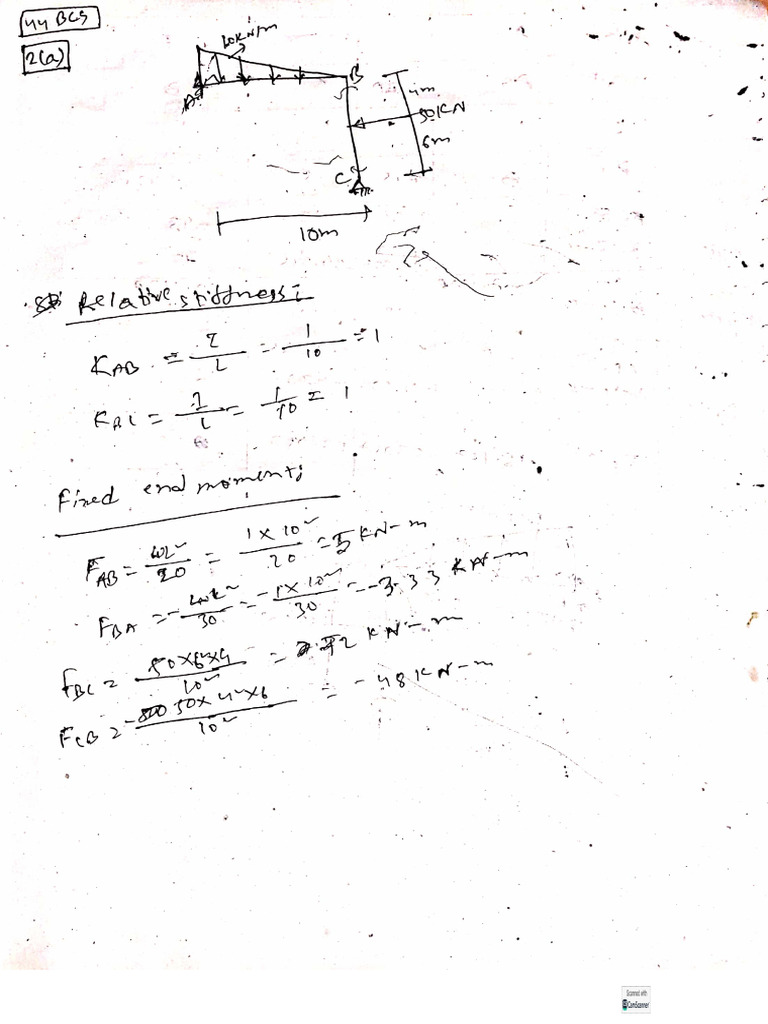 44 BCS
2(a)
10KN/m
A
B
4m
50KN
6m
C
10m
Relative stiffness:
K_AB = I/L = 1/10 = 1
K_BC = I/L = 1/10 = 1
Fixed end moment:
F_AB = wL²/20 = 1×10²/20 = 5 KN-m
F_BA = -wL²/30 = -1×10²/30 = -3.33 KN-m
F_BC = 50×6²×4/10² = 72 KN-m
F_CB = -50×4²×6/10² = -48 KN-m
Scanned with
CamScanner